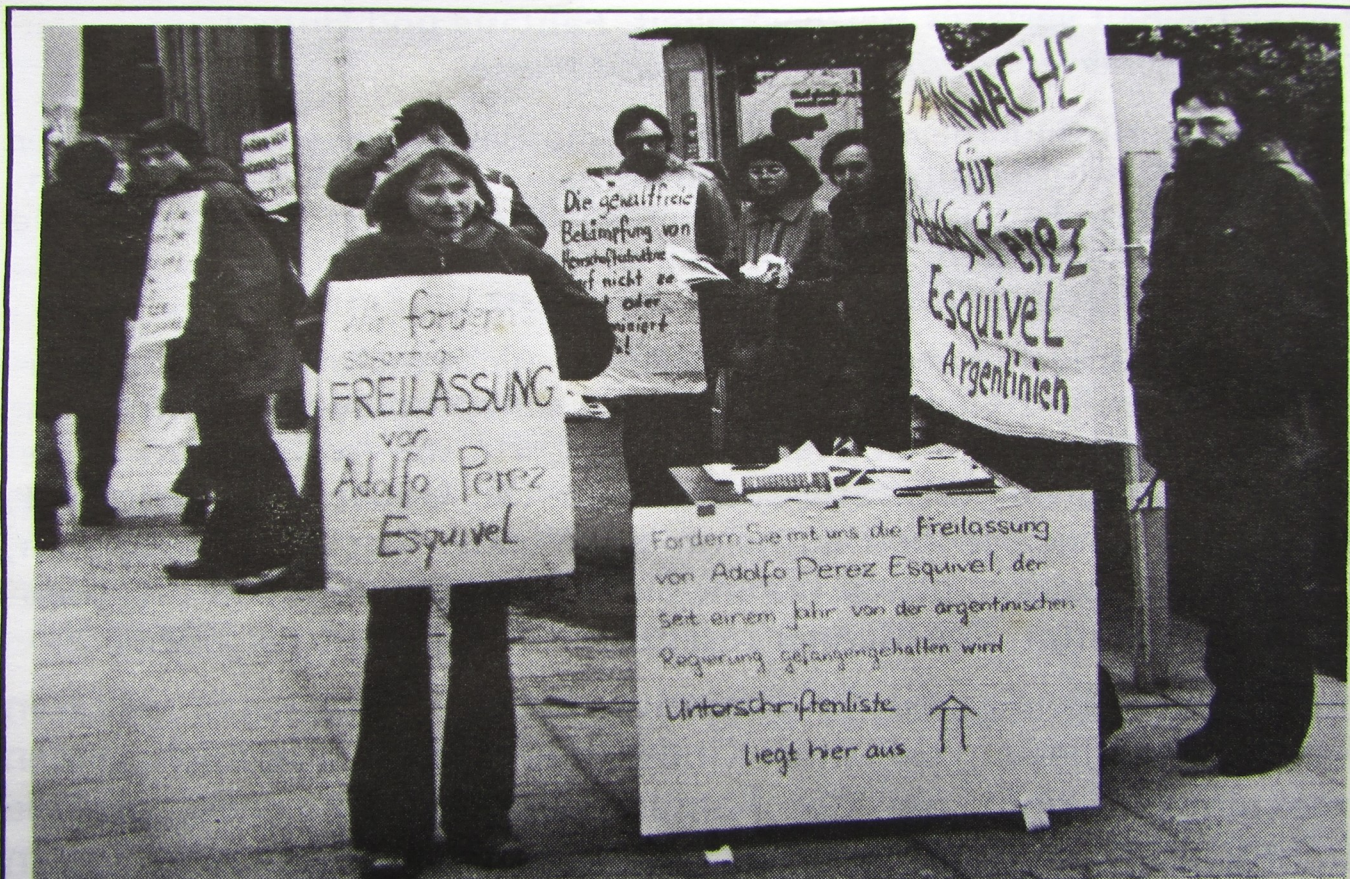 Wir fordern
sofortige
FREILASSUNG
von
Adolfo Perez
Esquivel
Die gewaltfreie
Bekämpfung von
rf nicht
oder
MAHNWACHE
für
Adolfo Perez
Esquivel
Argentinien
Fordern Sie mit uns die Freilassung
von Adolfo Perez Esquivel, der
seit einem Jahr von der argentinischen
Regierung gefangengehalten wird
Unterschriftenliste
liegt hier aus